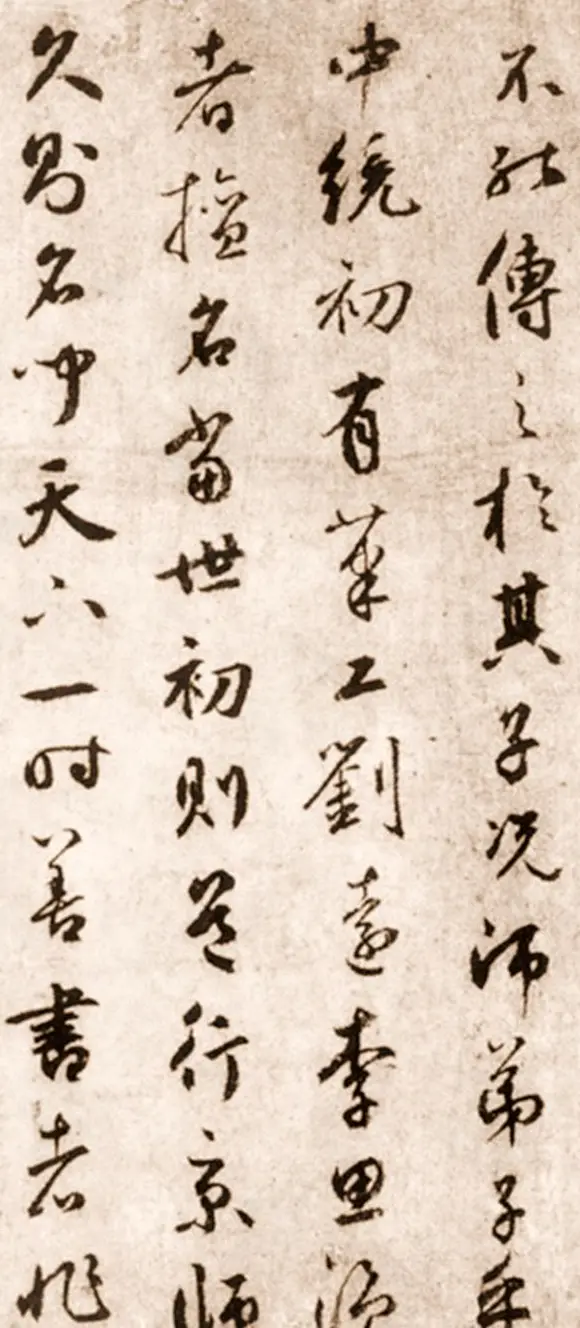 不能傳之於其子况師弟子乎
中統初有筆工劉遠李思
者擅名當世初則道行京師
久則名聞天下一時善書者非